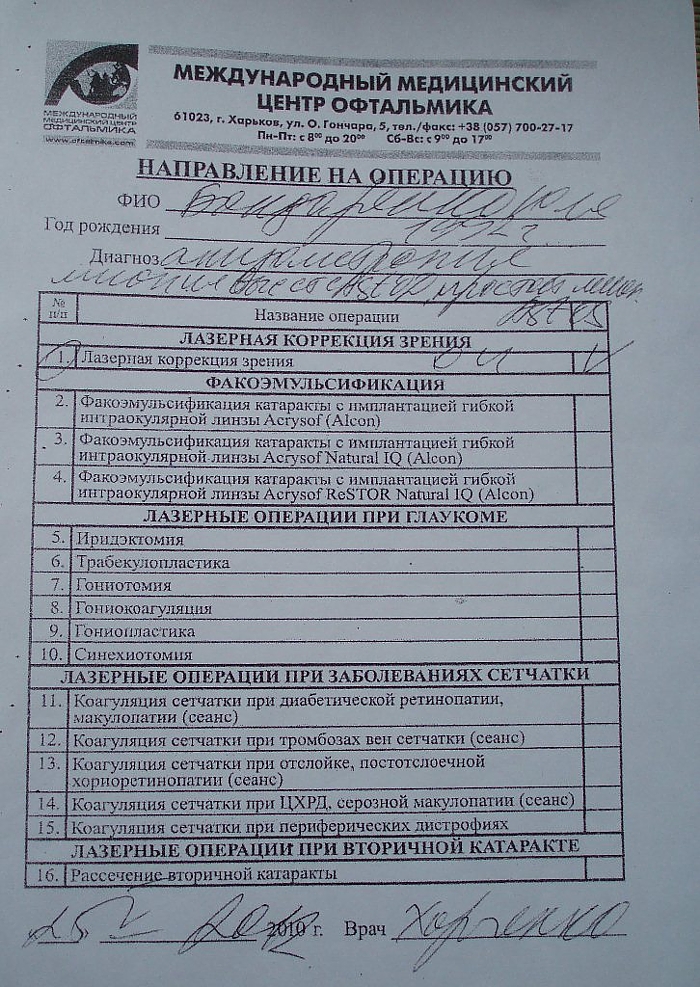 МЕЖДУНАРОДНЫЙ
МЕДИЦИНСКИЙ ЦЕНТР
ОФТАЛЬМИКА
www.oftalmika.com
МЕЖДУНАРОДНЫЙ МЕДИЦИНСКИЙ
ЦЕНТР ОФТАЛЬМИКА
61023, г. Харьков, ул. О. Гончара, 5, тел./факс: +38 (057) 700-27-17
Пн-Пт: с 8⁰⁰ до 20⁰⁰ Сб-Вс: с 9⁰⁰ до 17⁰⁰
НАПРАВЛЕНИЕ НА ОПЕРАЦИЮ
ФИО Бондаренко
Год рождения
Диагноз анизометропия
миопия
№ п/п Название операции
ЛАЗЕРНАЯ КОРРЕКЦИЯ ЗРЕНИЯ
1. Лазерная коррекция зрения OU V
ФАКОЭМУЛЬСИФИКАЦИЯ
2. Факоэмульсификация катаракты с имплантацией гибкой
интраокулярной линзы Acrysof (Alcon)
3. Факоэмульсификация катаракты с имплантацией гибкой
интраокулярной линзы Acrysof Natural IQ (Alcon)
4. Факоэмульсификация катаракты с имплантацией гибкой
интраокулярной линзы Acrysof ReSTOR Natural IQ (Alcon)
ЛАЗЕРНЫЕ ОПЕРАЦИИ ПРИ ГЛАУКОМЕ
5. Иридэктомия
6. Трабекулопластика
7. Гониотомия
8. Гониокоагуляция
9. Гониопластика
10. Синехиотомия
ЛАЗЕРНЫЕ ОПЕРАЦИИ ПРИ ЗАБОЛЕВАНИЯХ СЕТЧАТКИ
11. Коагуляция сетчатки при диабетической ретинопатии,
макулопатии (сеанс)
12. Коагуляция сетчатки при тромбозах вен сетчатки (сеанс)
13. Коагуляция сетчатки при отслойке, постотслоечной
хориоретинопатии (сеанс)
14. Коагуляция сетчатки при ЦХРД, серозной макулопатии (сеанс)
15. Коагуляция сетчатки при периферических дистрофиях
ЛАЗЕРНЫЕ ОПЕРАЦИИ ПРИ ВТОРИЧНОЙ КАТАРАКТЕ
16. Рассечение вторичной катаракты
25 V 2010 г. Врач